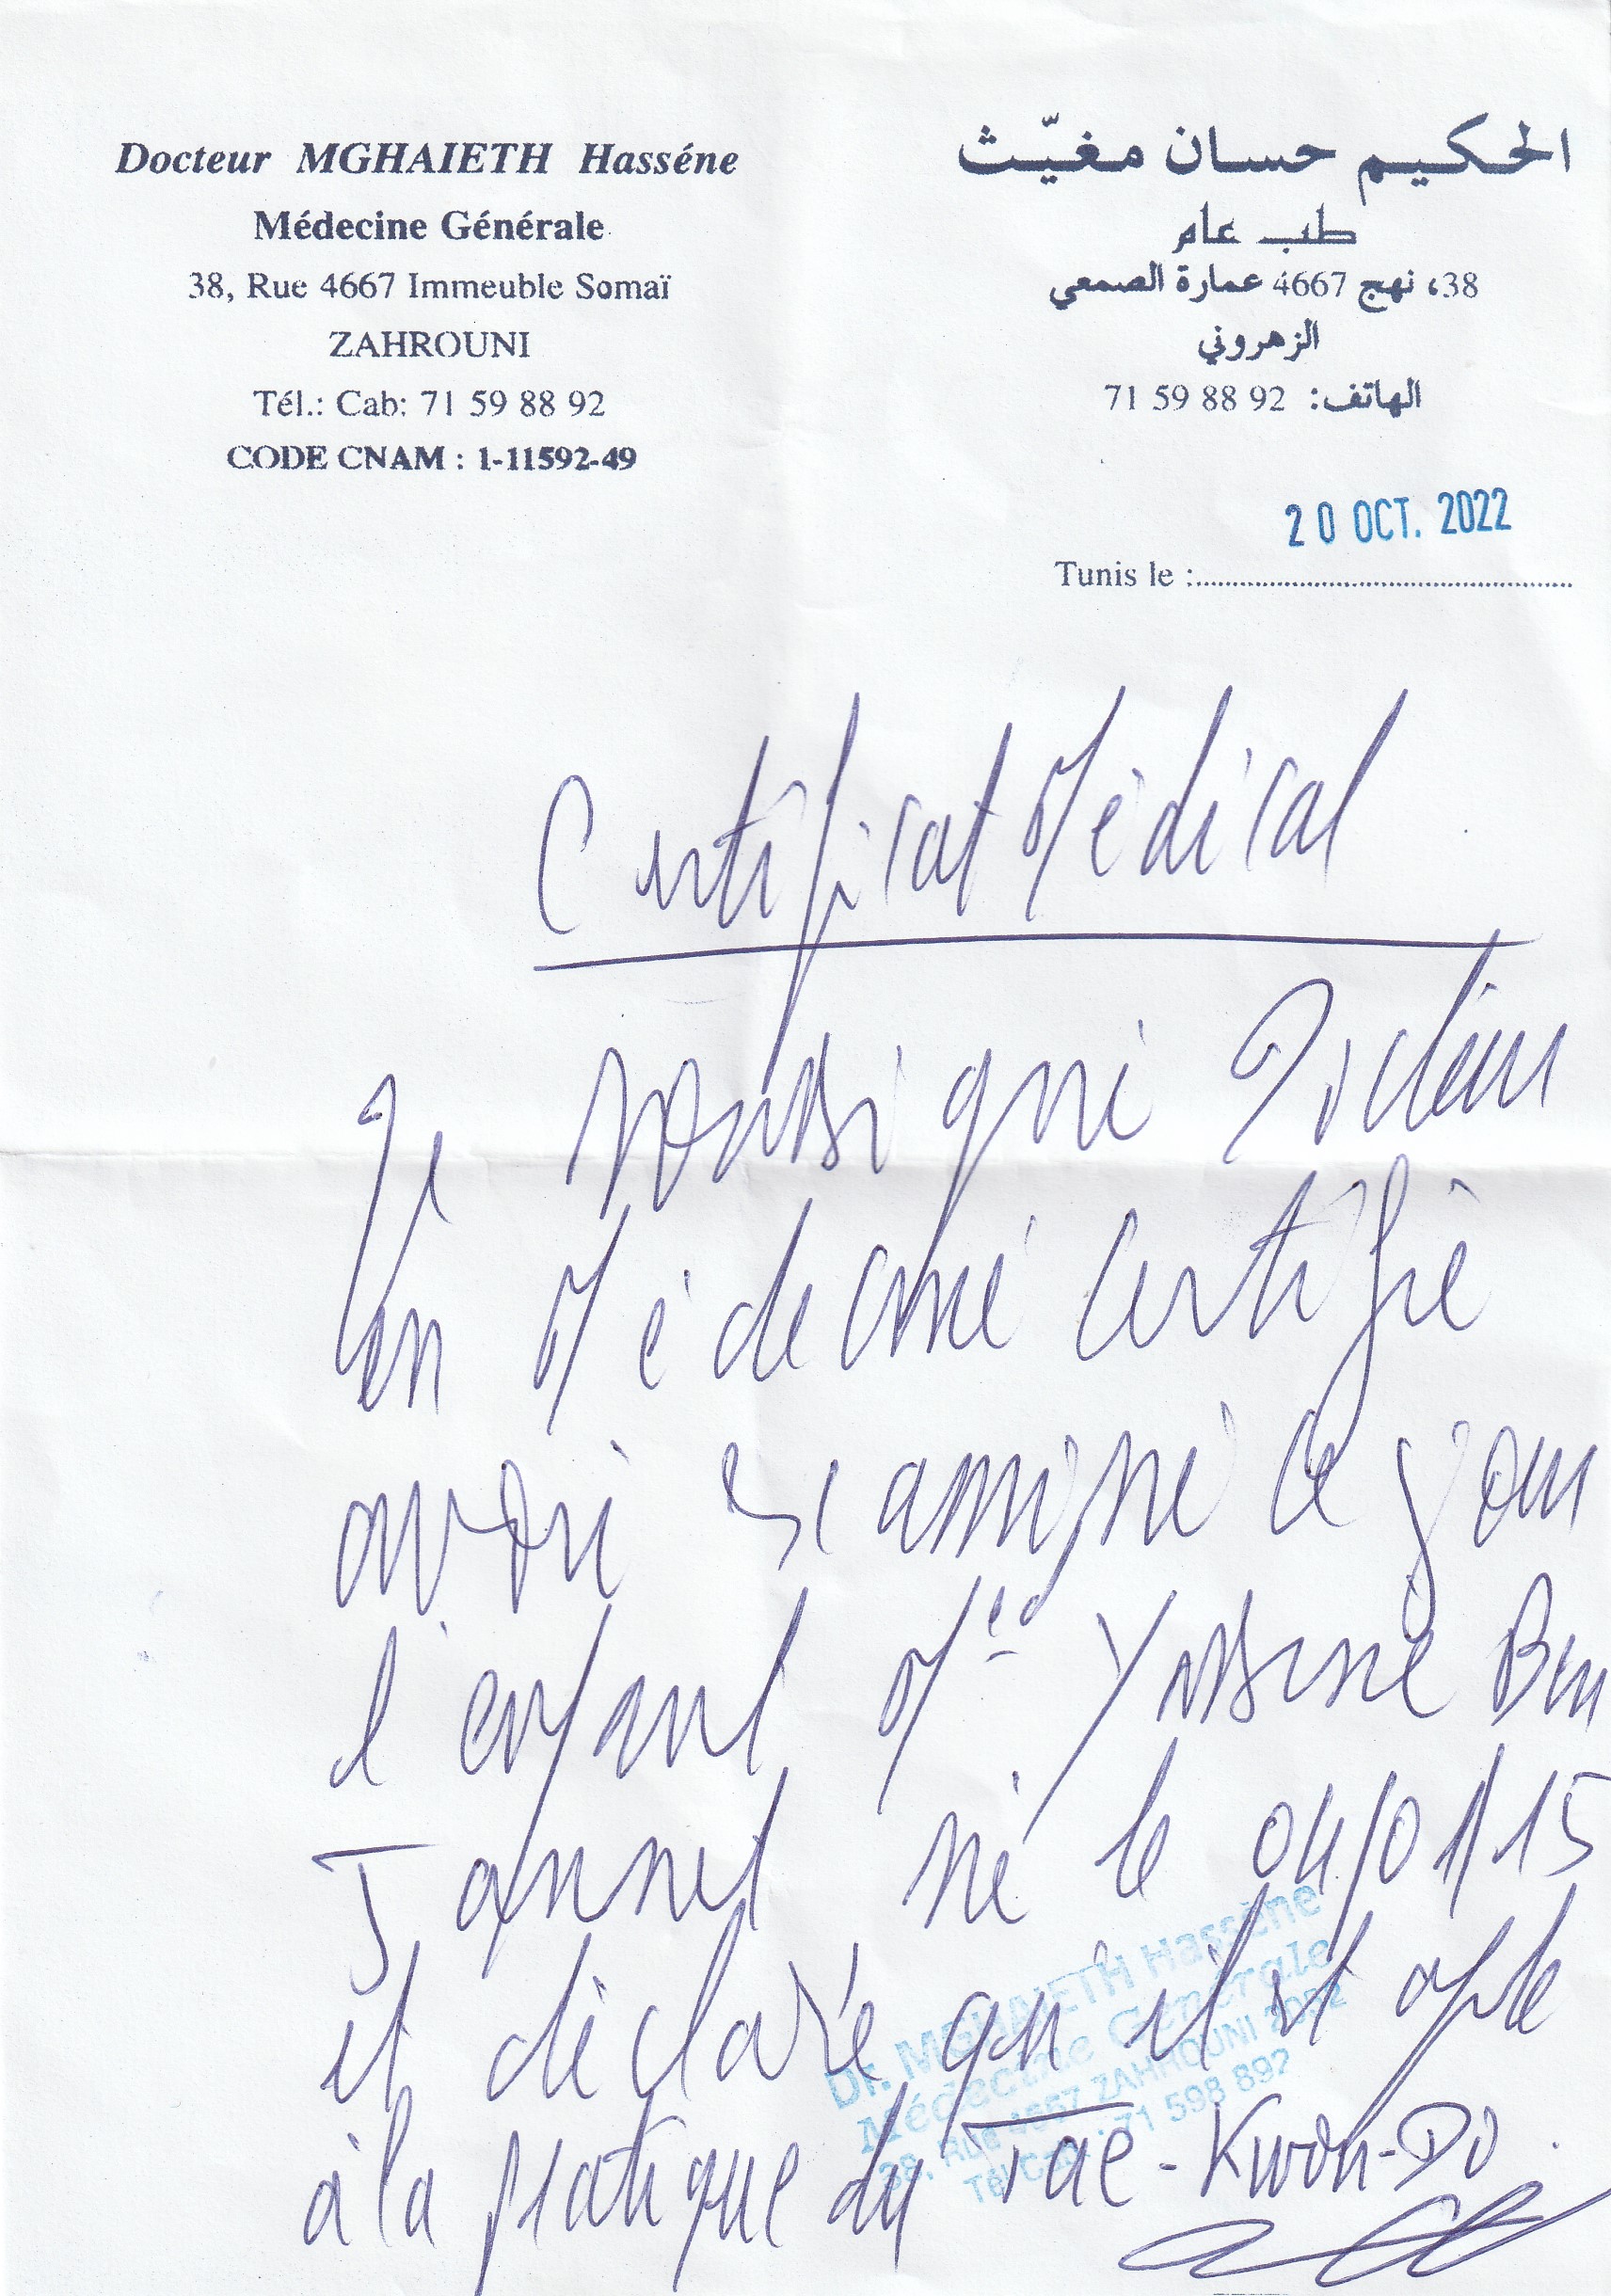 Docteur MGHAIETH Hasséne
Médecine Générale
38, Rue 4667 Immeuble Somaï
ZAHROUNI
Tél.: Cab: 71 59 88 92
CODE CNAM : 1-11592-49
الحكيم حسان مغيّث
طب عام
38، نهج 4667 عمارة الصمعي
الزهروني
الهاتف: 71 59 88 92
20 OCT. 2022
Tunis le :
Certificat Médical
Je soussigné Docteur
en Médecine certifie
avoir examiné ce jour
l'enfant Med Yassine Ben
né le 04/01/15
et déclare qu'il est apte
à la pratique du Tae-Kwon-Do
Dr. MGHAIETH Hasséne
Médecine Générale
38, Rue 4667 ZAHROUNI
Tél Cab: 71 598 892